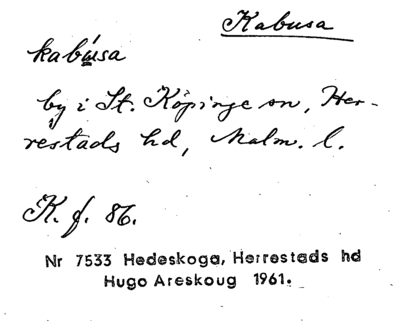 Kabusa
kabúsa
by i St. Köpinge sn, Her-
restads hd, Malm. l.
K. f. 86.
Nr 7533 Hedeskoga, Herrestads hd
Hugo Areskoug 1961.